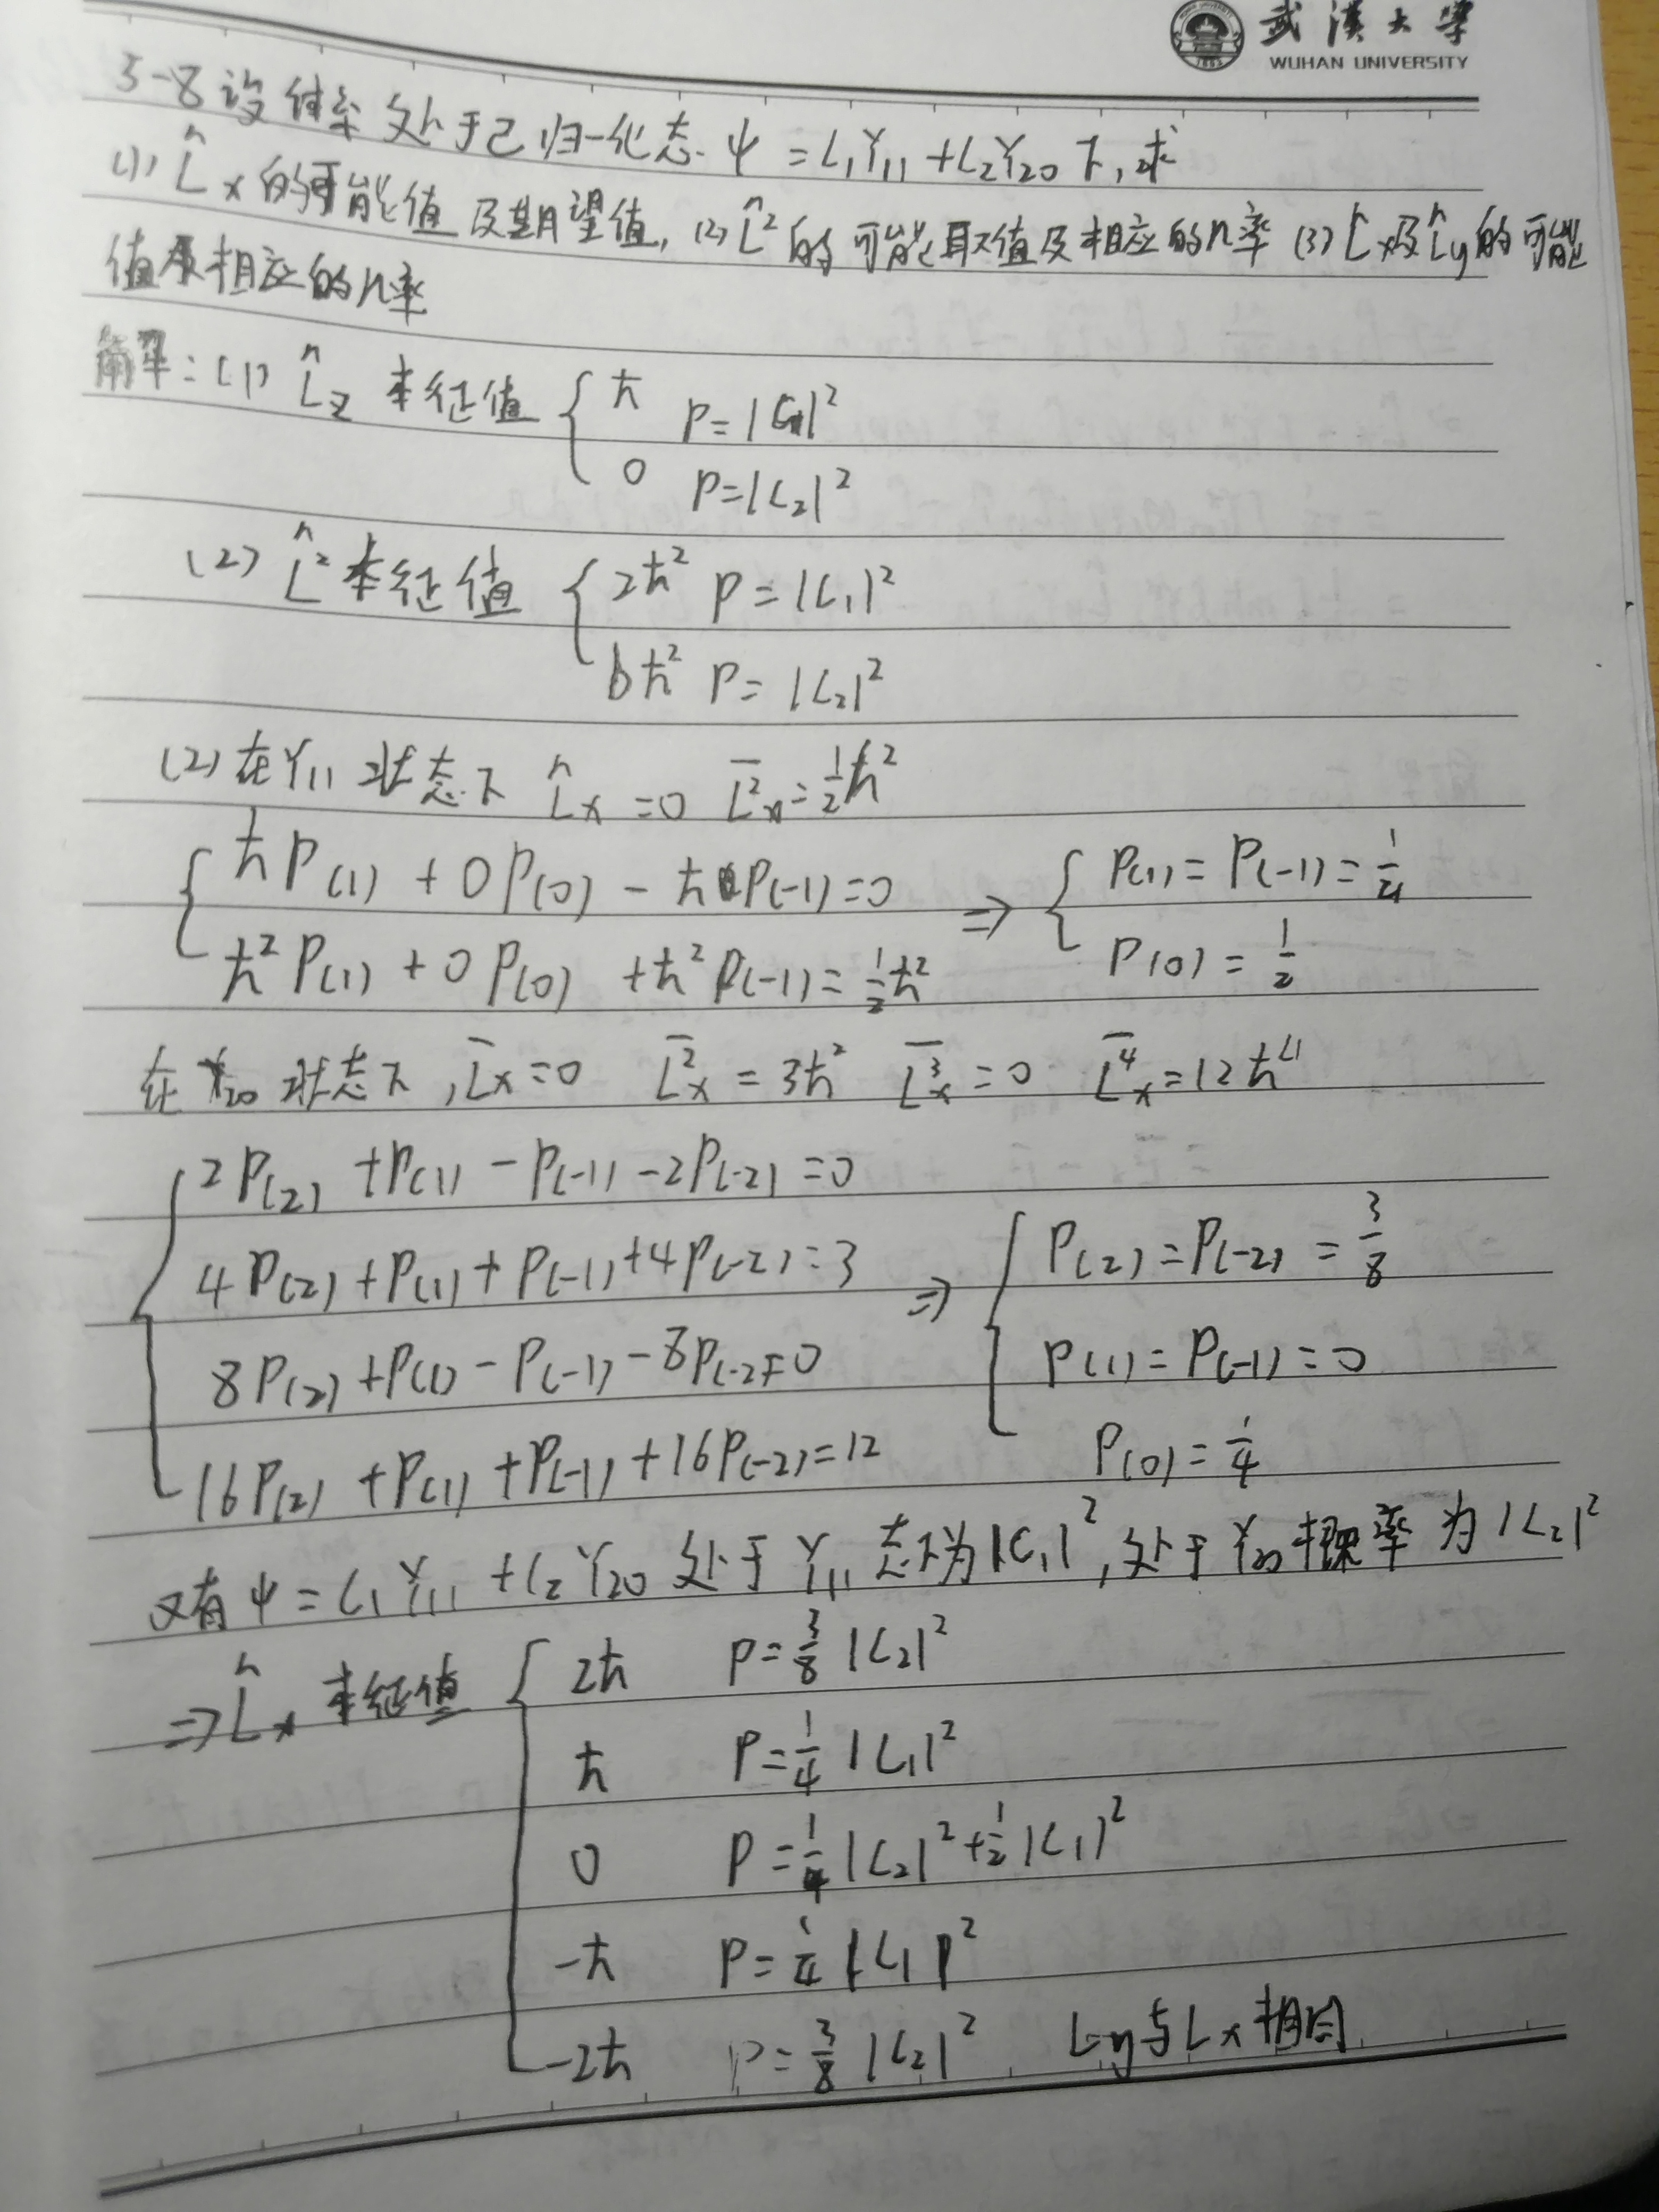 武漢大學
WUHAN UNIVERSITY
5-8 设体系处于已归一化态 ψ = C₁Y₁₁ + C₂Y₂₀ 下, 求
(1) L̂x 的可能值及期望值, (2) L̂² 的可能取值及相应的几率 (3) L̂x及L̂y的可能
值及相应的几率
解: (1) L̂z 本征值 { ħ P=|C₁|²
0 P=|C₂|²
(2) L̂² 本征值 { 2ħ² P=|C₁|²
6ħ² P=|C₂|²
(2) 在Y₁₁ 状态下 L̂x =0 L̄²x = ½ħ²
{ ħP(1) + 0P(0) - ħP(-1)=0 ⇒ { P(1)=P(-1)=1/4
ħ²P(1) + 0P(0) + ħ²P(-1)=½ħ² P(0)=1/2
在Y₂₀ 状态下, L̄x=0 L̄²x=3ħ² L̄³x=0 L̄⁴x=12ħ⁴
{ 2P(2) + P(1) - P(-1) - 2P(-2) =0
4P(2) + P(1) + P(-1) + 4P(-2) =3 ⇒ { P(2)=P(-2)=3/8
8P(2) + P(1) - P(-1) - 8P(-2)=0 P(1)=P(-1)=0
16P(2) + P(1) + P(-1) + 16P(-2)=12 P(0)=1/4
又有 ψ = C₁Y₁₁ + C₂Y₂₀ 处于 Y₁₁ 态下为|C₁|², 处于 Y₂₀ 概率为 |C₂|²
⇒ L̂x 本征值 { 2ħ P=3/8 |C₂|²
ħ P=1/4 |C₁|²
0 P=1/4 |C₂|² + 1/2 |C₁|²
-ħ P=1/4 |C₁|²
-2ħ P=3/8 |C₂|² Ly与Lx相同